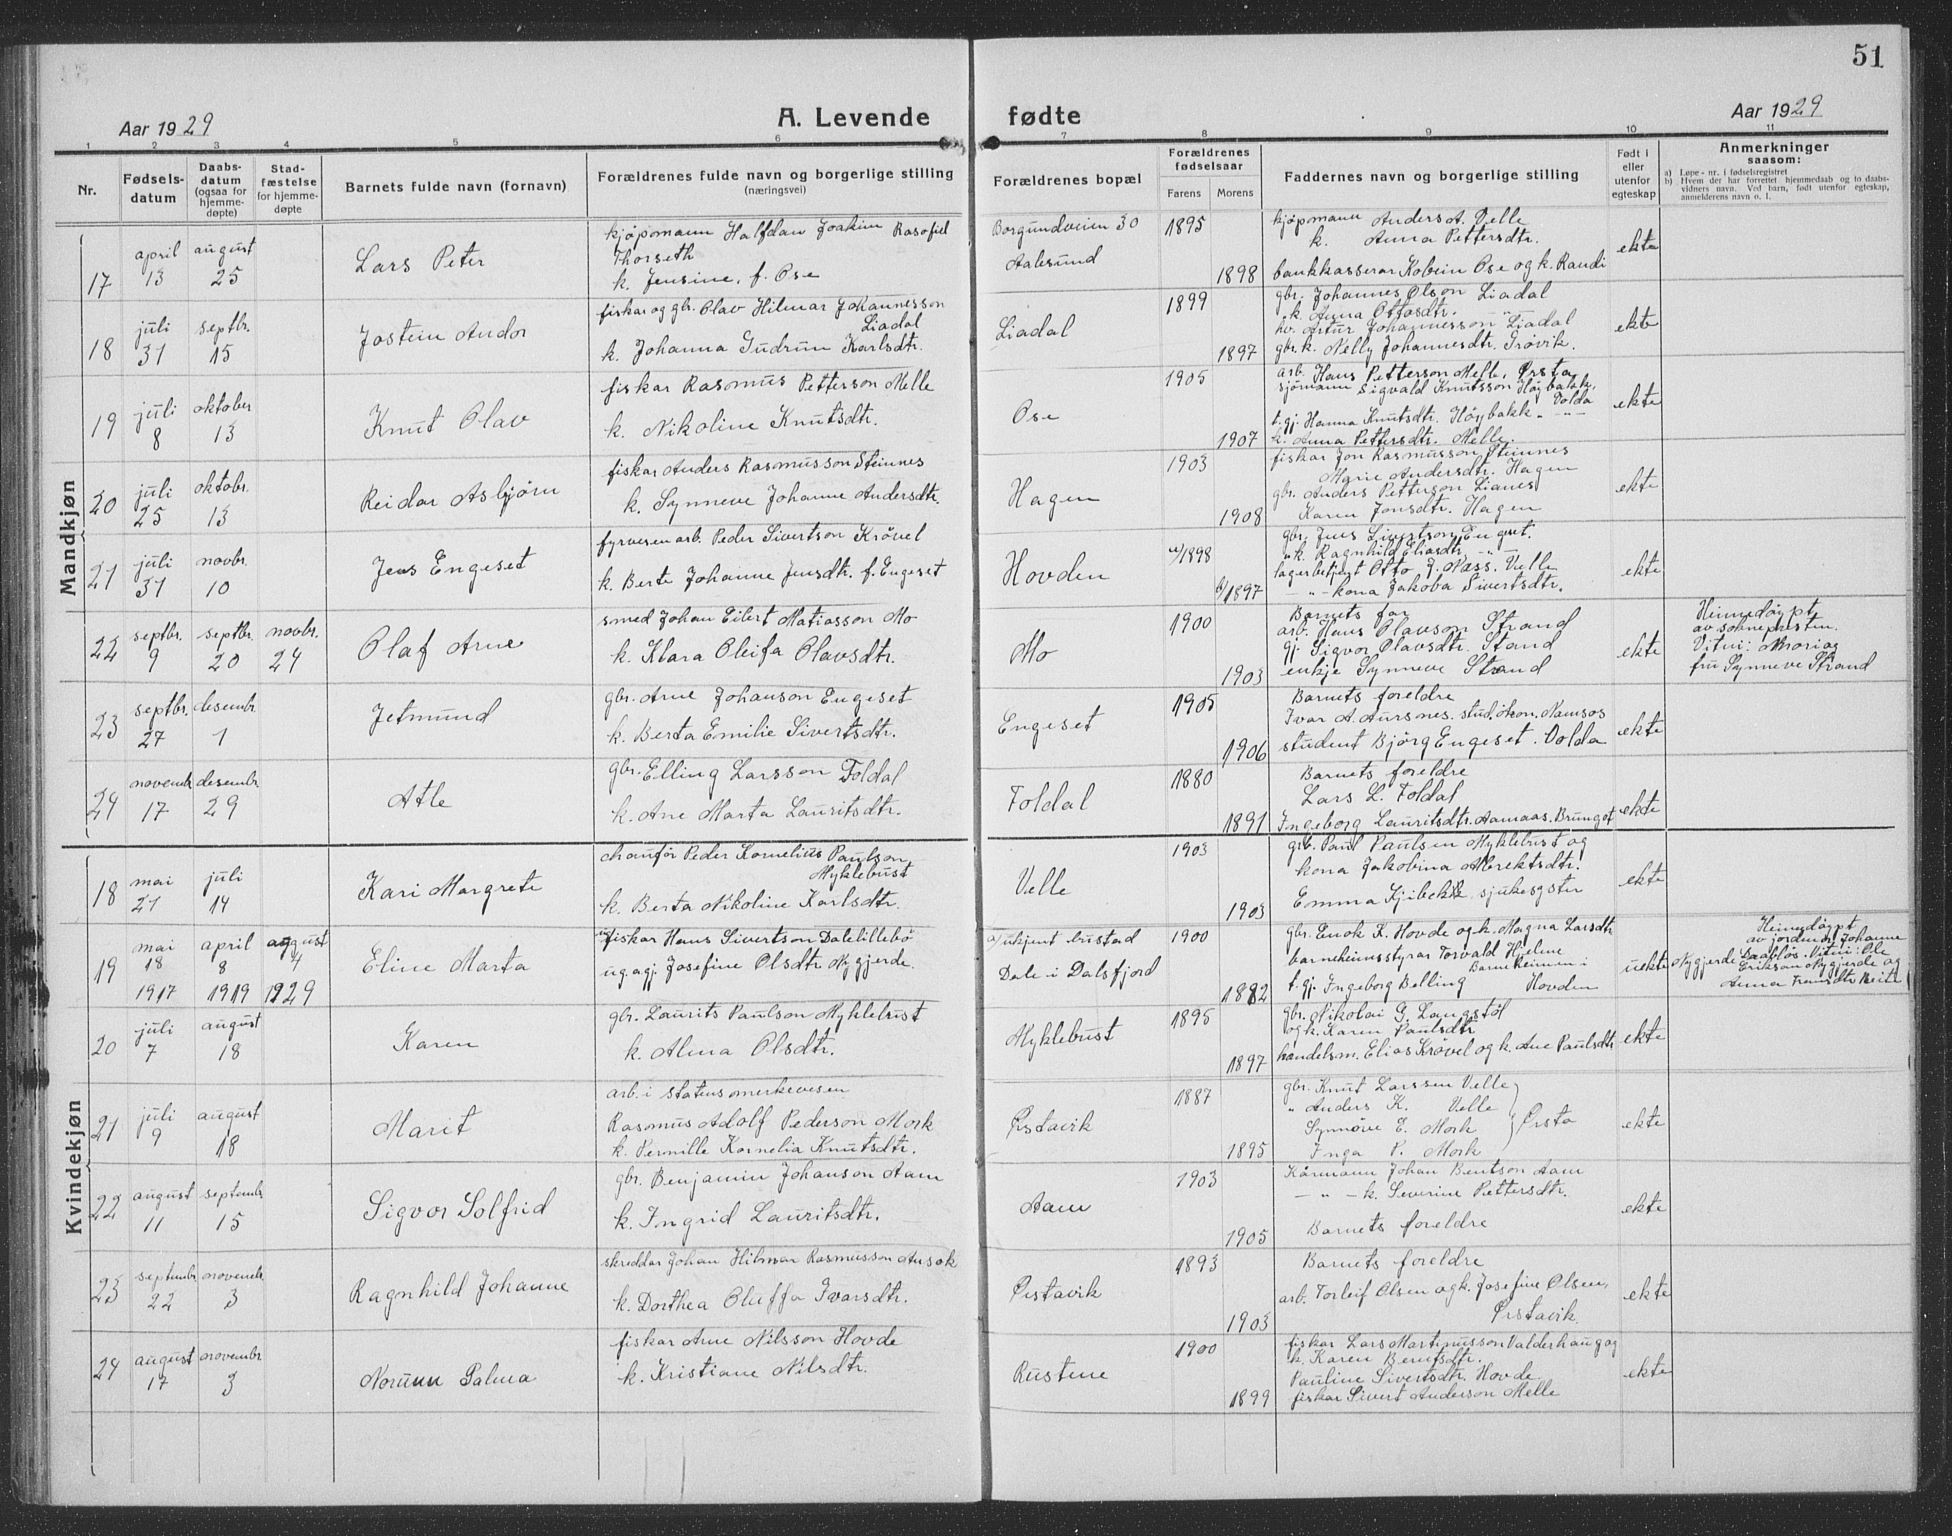 51
Aar 1929
A. Levende fødte
Aar 1929
1 2 3 4 5 6 7 8 9 10 11
Nr.
Fødsels-
datum
Daabs-
datum
(ogsaa for
hjemme-
døpte)
Stad-
fæstelse
for hjemme-
døpte
Barnets fulde navn (fornavn)
Forældrenes fulde navn og borgerlige stilling
(næringsvei)
Forældrenes bopæl
Forældrenes
fødselsaar
Farens Morens
Faddernes navn og borgerlige stilling
Født i
eller
utenfor
egteskap
Anmerkninger
saasom:
a) Løpe-nr. i fødselsregistret
b) Hvem der har forrettet hjemmedaab og to daabs-
vidners navn. Ved barn, født utenfor egteskap,
anmelderens navn o. l.
Mandkjøn
17
april
13
august
25
Lars Peter
kjøpmann Halfdan Joakim
Thorseth
k. Jensine, f. Ose
Borgundveien 30
Aalesund
1895
1898
kjøpmann Anders A. Velle
k. Anna Pettersdtr.
bankkasserar Kobein Ose og k. Randi
ekte
18
juli
31
septbr.
15
Jostein Andor
fiskar og gbr. Olav Hilmar Johannesson
Liadal
k. Johanna Gudrun Karlsdtr.
Liadal
1899
1897
gbr. Johannes Olson Liadal
k. Anna Ottosdtr. -"-
hv. Artur Johannesson Liadal
gbr.k. Nelly Johannesdtr. Trøvik.
ekte
19
juli
8
oktober
13
Knut Olav
fiskar Rasmus Petterson Melle
k. Nikoline Knutsdtr.
Ose
1905
1907
arb. Hans Petterson Melle, Ørsta
sjømann Sigvald Knutsson Høybakk,
Volda
t.gj. Hanna Knutsdtr. Høybakk -"-
k. Anna Pettersdtr. Melle.
ekte
20
juli
25
oktobr.
13
Reidar Asbjørn
fiskar Anders Rasmusson Steinnes
k. Synneve Johanne Andersdtr.
Hagen
1903
1908
fiskar Jon Rasmusson Steinnes
Marie Andersdtr. Hagen
gbr. Anders Petterson Lianes
Karen Jonsdtr. Hagen
ekte
21
juli
31
novbr.
10
Jens Engeset
fyrvesenarb. Peder Sivertson Krøvel
k. Berte Johanne Jensdtr. f. Engeset
Hovden
1898
1897
gbr. Jens Sivertson Engeset.
"k. Ragnhild Eliasdtr. -"-
lagerbetjent Otto J. Næss, Velle
-"- kona Jakoba Sivertsdtr.
ekte
22
septbr.
9
septbr.
20
novbr.
24
Olaf Arne
smed Johan Eilert Matiasson Mo
k. Klara Oleifa Olavsdtr.
Mo
1900
1903
Barnets far
arb. Hans Olavson Strand
gj. Sigvor Olavsdtr. Stand
enkje Synneve Strand
ekte
Heimedøypt
av soknepresten.
Vitni:
fru Synneve Strand
23
septbr.
27
desembr
1
Jetmund
gbr. Arne Johanson Engeset
k. Berta Emilie Sivertsdtr.
Engeset
1905
1906
Barnets foreldre
Ivar A. Aursnes. stud. økon. Namsos
student Bjørg Engeset. Volda
ekte
24
novembr
17
desembr
29
Atle
gbr. Elling Larsson Foldal
k. Ane Marta Lauritsdtr.
Foldal
1880
1891
Barnets foreldre
Lars L. Foldal
Ingeborg Lauritsdtr. Aamaas. Brunget
ekte
Kvindekjøn
18
mai
21
juli
14
Kari Margrete
chaufør Peder Kornelius Paulson
Myklebust
k. Berta Nikoline Karlsdtr.
Velle
1903
1903
grb. Paul Paulsen Myklebust og
kona Jakobina Albrektsdtr.
Emma Kjibekk sjukesyster
ekte
19
mai
18
1917
april
8
1919
august
4
1929
Eline Marta
fiskar Hans Sivertson Dalelillebø
ugagj. Josefine Olsdtr. Nygjerde.
a/ukjent bustad
Dale i Dalsfjord
1900
1882
gbr. Enok K. Hovde og k. Magna Larsdtr
barneheimsstyrar Torvald Hjelme
Barneheimen i
t. gj. Ingeborg Belling Hovden
uekte
Heimedøypt
av jordemor Johanne
Nygjerde Daabløs. Vitni: Ole
Erikson Nygjerde og
Anna Fransdtr.
20
juli
7
august
18
Karen
gbr. Laurits Paulson Myklebust
k. Alma Olsdtr.
Myklebust
1895
1897
gbr. Nikolai G. Langstøl
og k. Karen Paulsdtr
handelsm. Elias Krøvel og k. Ane Paulsdtr
ekte
21
juli
9
august
18
Marit
arb. i statens merkevesen
Rasmus Adolf Pederson Mork
k. Pernille Kornelia Knutsdtr.
Ørstavik
1887
1895
gbr. Knut Larssen Velle
" Anders K. Velle
Synnøve E. Mork
Inga P. Mork
Ørsta
ekte
22
august
11
septembr
15
Sigvor Solfrid
gbr. Benjamin Johanson Aam
k. Ingrid Lauritsdtr.
Aam
1903
1905
Kårmann Johan Bentson Aam
-"- k. Severine Pettersdtr.
Barnets foreldre
ekte
23
septembr
22
novembr.
3
Ragnhild Johanne
skreddar Johan Hilmar Rasmusson Aasok
k. Dorthea Oluffa Ivarsdtr.
Ørstavik
1893
1903
Barnets foreldre
arb. Torleif Olsen og k. Josefine Olsen,
Ørstavik.
ekte
24
august
17
novembr
3
Norunn Palma
fiskar Arne Nilsson Hovde
k. Kristiane Nilsdtr.
Rustene
1900
1899
fiskar Lars Martinusson Valderhaug og
k. Karen Berntsdtr.
Pauline Sivertsdtr. Hovde
fiskar Sivert Anderson Melle
ekte